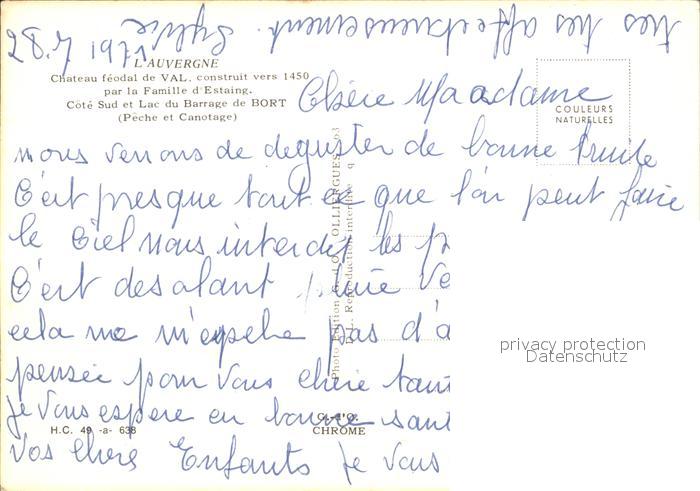 très très affectueusement. Sylvie
28.7 1971
L'AUVERGNE
Château féodal de VAL, construit vers 1450
par la Famille d'Estaing.
Côté Sud et Lac du Barrage de BORT
(Pêche et Canotage)
COULEURS
NATURELLES
Chère Maadame
nous venons de deguster de bonne truite
C'est presque tout ce que l'on peut faire
le Ciel nous interdit les p
C'est desolant
cela ne m'epeche pas d'a
pensée pour Vous chère tant
je Vous espere en bonne sant
Vos chers Enfants je vous
Photo Édition
Reproduction interdite
H.C. 49 -a- 638
CHROME
privacy protection
Datenschutz